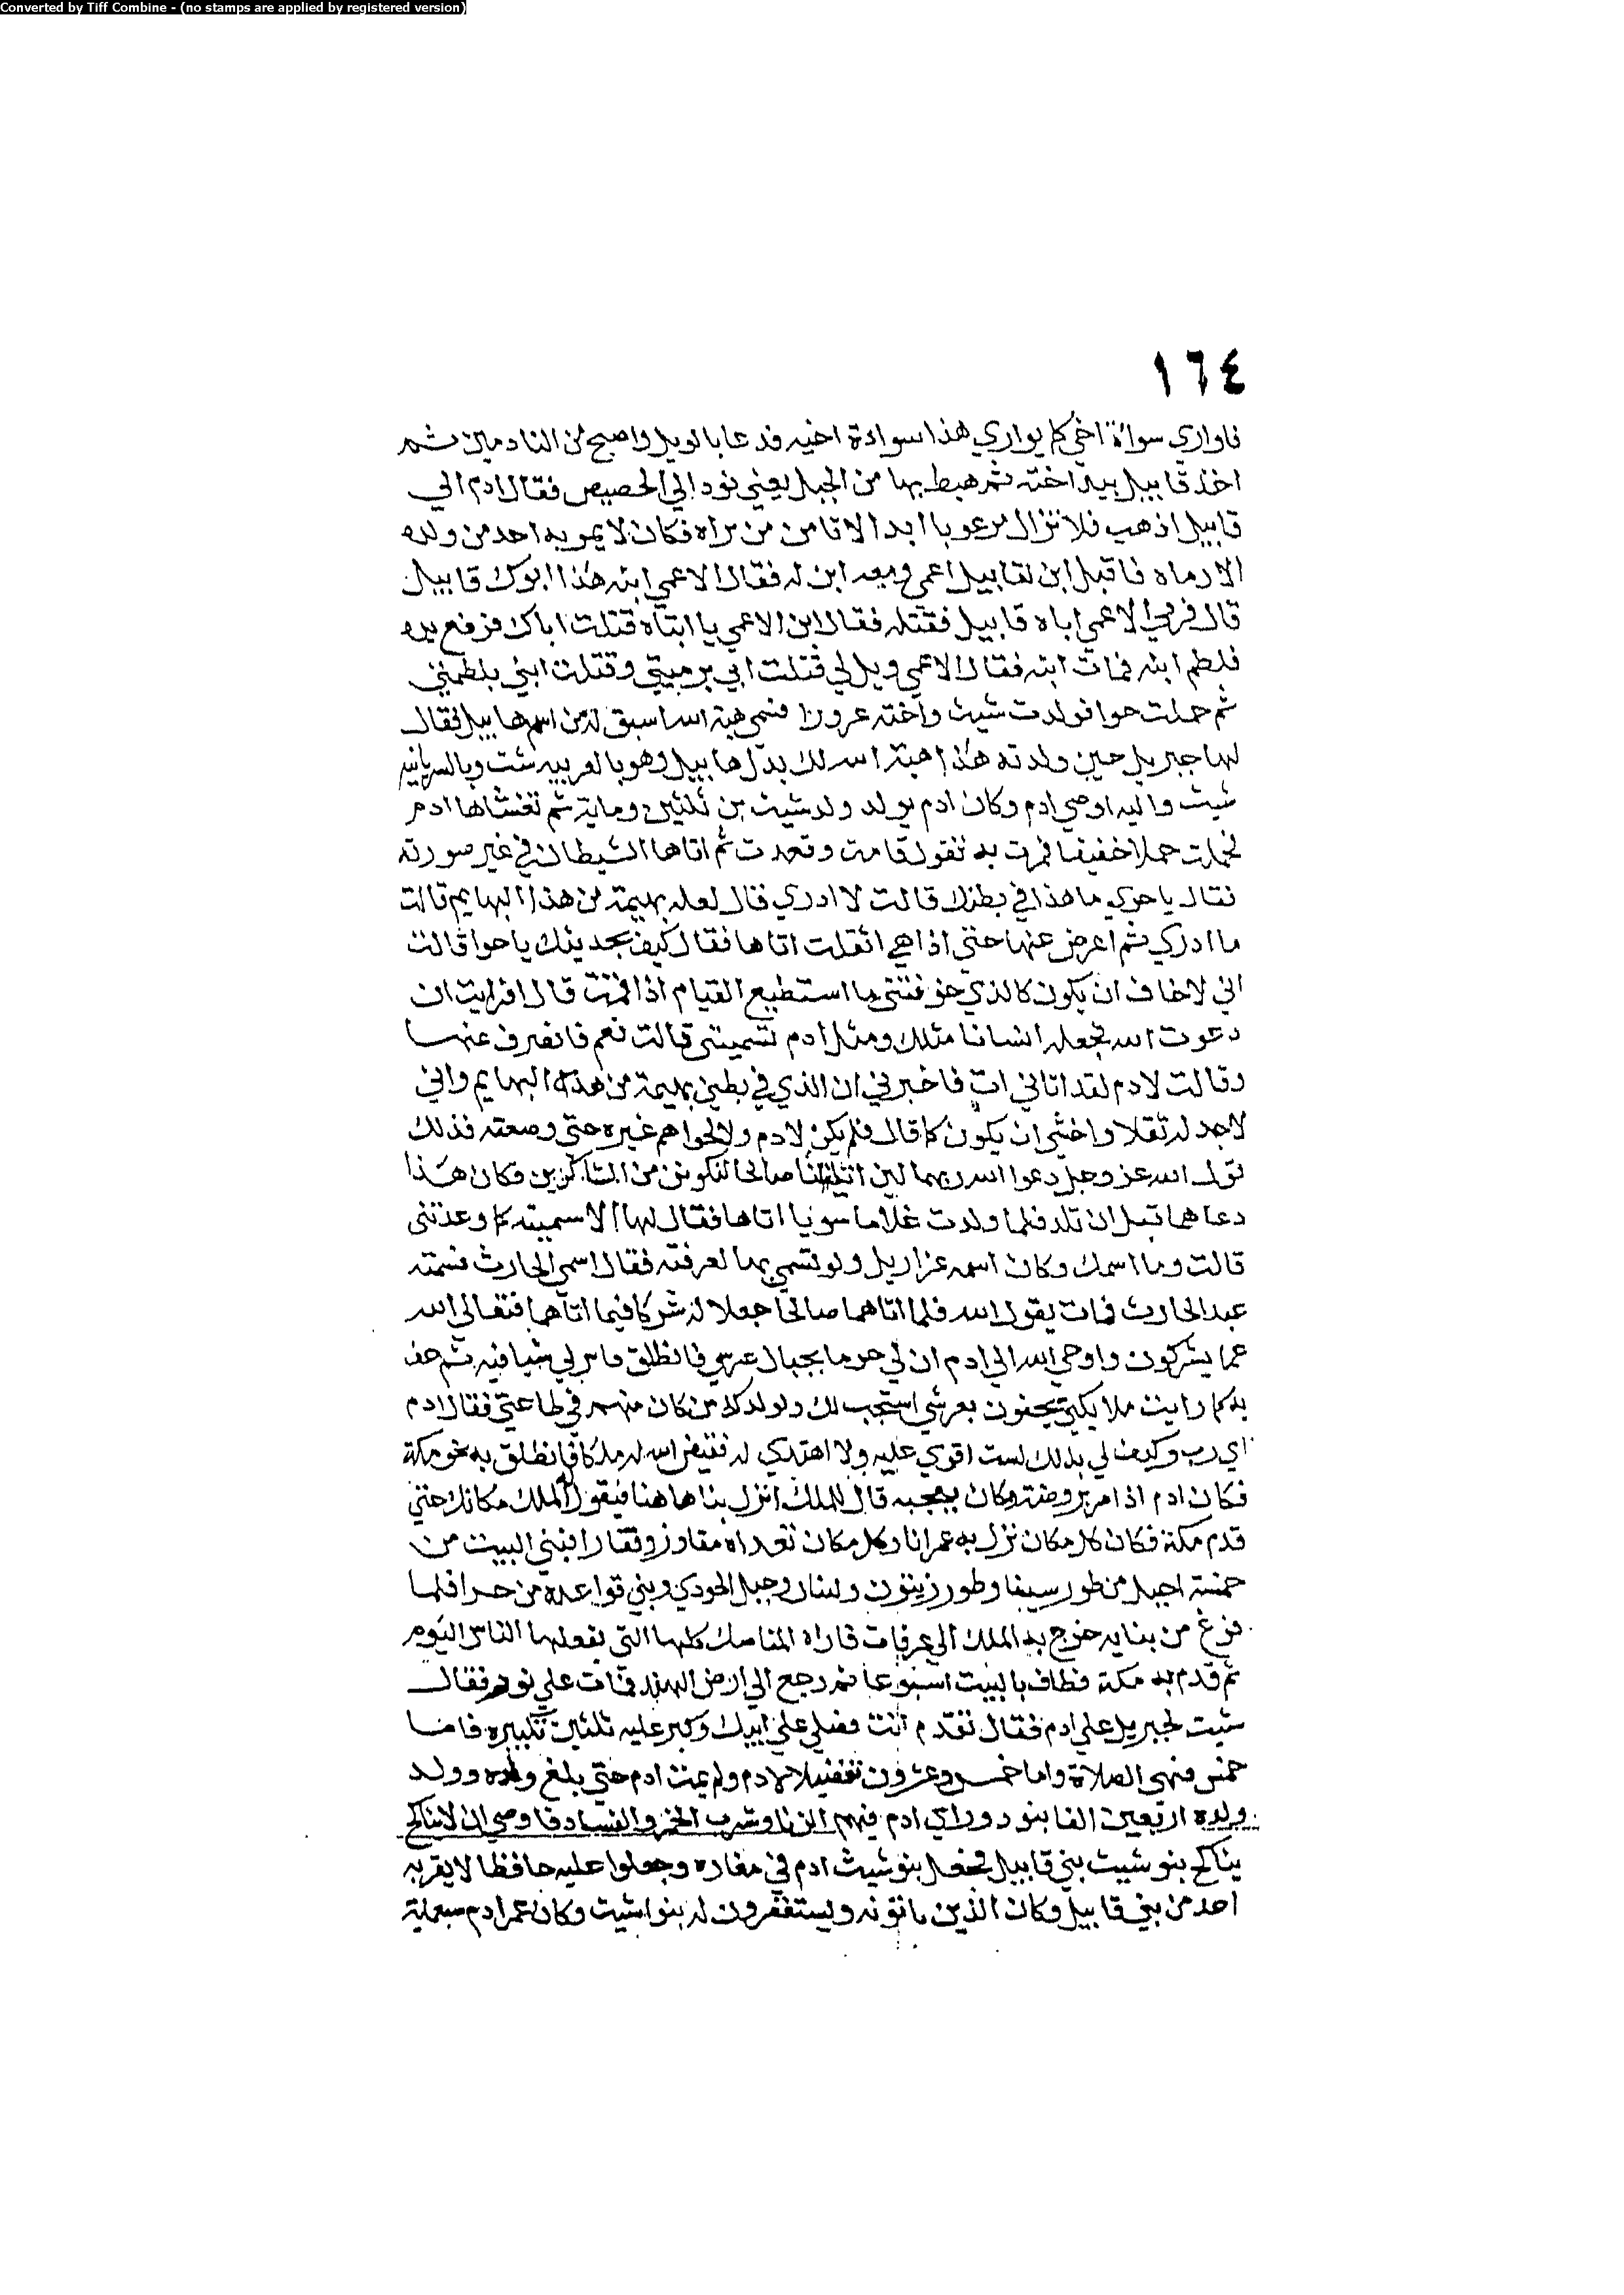 Converted by Tiff Combine - (no stamps are applied by registered version)
١٦٤
فاواري سواة اخي كما يواري هذا سواءة اخيه فدعا بالويل واصبح من النادمين ثم
اخذ قابيل بيد اخته ثم هبط بها من الجبل يعني نود الي الحصيص فقال ادم الي
قابيل اذهب فلا تزال مرعوبا ابدا لا تامن من تراه فكان لا يمر به احد من ولده
الا رماه فاقبل ابن لقابيل اعمي ومعه ابن له فقال الاعمي ابنه هذا ابوك قابيل
قال فرمي الاعمي اباه قابيل فقتله فقال ابن الاعمي يا ابتاه قتلت اباك فرفع يده
فلطم ابنه فمات ابنه فقال الاعمي ويل لي قتلت ابي برميتي وقتلت ابني بلطمتي
ثم حملت حوا فولدت شيث واخته عرورا فسمي هبة الله اسبق له من اسم هابيل فقال
لها جبريل حين ولدته هذا هبة الله لك بدل هابيل وهو بالعربيه شت وبالسريانيه
شيث واليه اوصي ادم وكان ادم يولد ولد شيث بن ثلثين وماية ثم تغشاها ادم
فحملت حملا خفيفا فمرت به تقول قامت وقعدت ثم اتاها الشيطان في غير صورته
فقال يا حوي ما هذا في بطنك قالت لا ادري قال لعله بهيمة من هذا البهايم قالت
ما ادري ثم اعرض عنها حتي اذا هي اثقلت اتاها فقال كيف تجدينك يا حوا قالت
اني لاخاف ان يكون كالذي خوفتني ما استطيع القيام اذا قمت قال افرايت ان
دعوت الله فجعله انسانا مثلك ومثل ادم تسميني قالت نعم فانصرف عنها
وقالت لادم لقد اتاني ات فاخبرني ان الذي في بطني بهيمة من هذه البهايم واني
لاجد له ثقلا واخشي ان يكون كما قال فلم يكن لادم ولا لحوا هم غيره حتي وضعته فذلك
قول الله عز وجل دعوا الله ربهما لين اتيتنا صالحا لنكونن من الشاكرين فكان هذا
دعاهما قبل ان تلد فلما ولدت غلاما سويا اتاها فقال لها الا سميته كما وعدتني
قالت وما اسمك وكان اسمه عزازيل ولو تسمي بهما لعرفته فقال اسمي الحارث فسمته
عبد الحارث فمات يقول الله فلما اتاهما صالحا جعلا له شركا فيما اتاهما فتعالي الله
عما يشركون واوحي الله الي ادم ان لي حرما بحيال عرشي فانطلق فابن لي بيتا فيه ثم حف
به كما رايت ملايكتي يحفون بعرشي استجب لك ولولدك من كان منهم في طاعتي فقال ادم
اي رب وكيف لي بذلك لست اقوي عليه ولا اهتدي له فقيض الله له ملكا فانطلق به نحو مكة
فكان ادم اذا مر بروضة ومكان يعجبه قال للملك انزل بنا هاهنا فيقول الملك مكانك حتي
قدم مكة فكان كل مكان نزل به عمرانا وكل مكان تعداه مفاوز وقفارا فبني البيت من
خمسة اجبل من طور سينا وطور زيتون ولبنان وجبل الجودي وبني قواعده من حرا فلما
فرغ من بنايه خرج به الملك الي عرفات فاراه المناسك كلها التي يفعلها الناس اليوم
ثم قدم به مكة فطاف بالبيت اسبوعا ثم رجع الي ارض الهند فمات علي نود فقال
شيت لجبريل علي ادم فقال تقدم انت فصلي علي ابيك وكبر عليه ثلثين تكبيره فاما
خمس فهي الصلاة واما خمس وعشرون تفضيلا لادم ولم يمت ادم حتي بلغ ولده وولد
ولده اربعين الفا بنود وراي ادم فيهم الزنا وشرب الخمر والفساد فاوصي ان لا يناكح
يناكح بنو شيث بني قابيل فجعل بنو شيث ادم في مغاره وجعلوا عليه حافظا لا يقربه
احد من بني قابيل وكان الذين ياتونه ويستغفرون له بنوا شيث وكان عمر ادم سبعماية